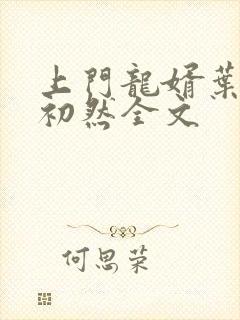 上門龍婿葉
初然全文
何思荣